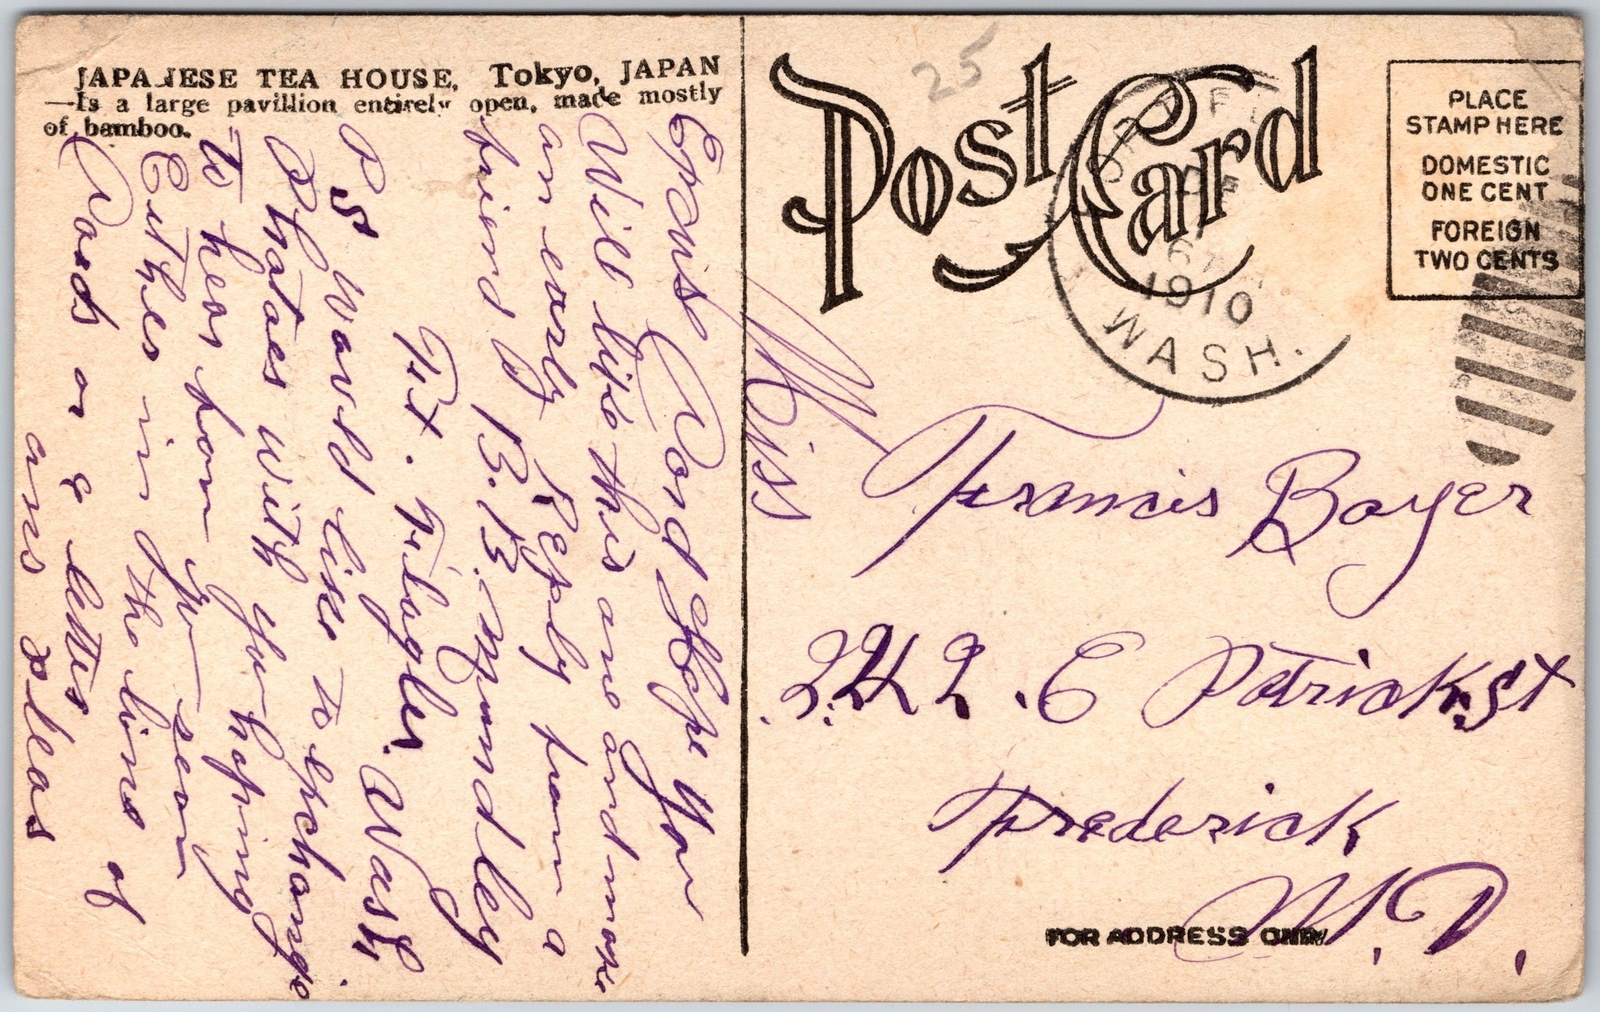 JAPANESE TEA HOUSE, Tokyo, JAPAN
—Is a large pavillion entirely open, made mostly
of bamboo.
Card Hope you
Will like this one and make
an early Reply from a
friend B. B. Mundley
Fort. Wash
PS Would like to exchange
with you hoping
To hear from you soon
Either in the line of
Cards or a letter
ans pleas
Post Card
25
1910
WASH.
PLACE
STAMP HERE
DOMESTIC
ONE CENT
FOREIGN
TWO CENTS
Miss
Francis Boyer
E Patrick St
Frederick
M.D.
FOR ADDRESS ONLY